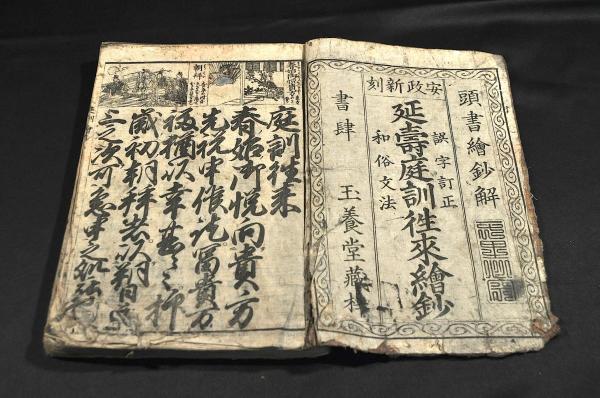 安政新刻
頭書繪鈔解
誤字訂正
延壽庭訓徃來繪鈔
和俗文法
書肆 玉養堂藏梓
朝拝
庭訓徃来
春始御悦向貴方
先祝申候訖冨貴万
福猶以幸甚々々抑
歳初朝拝者以朔日元
三之次可急申之処